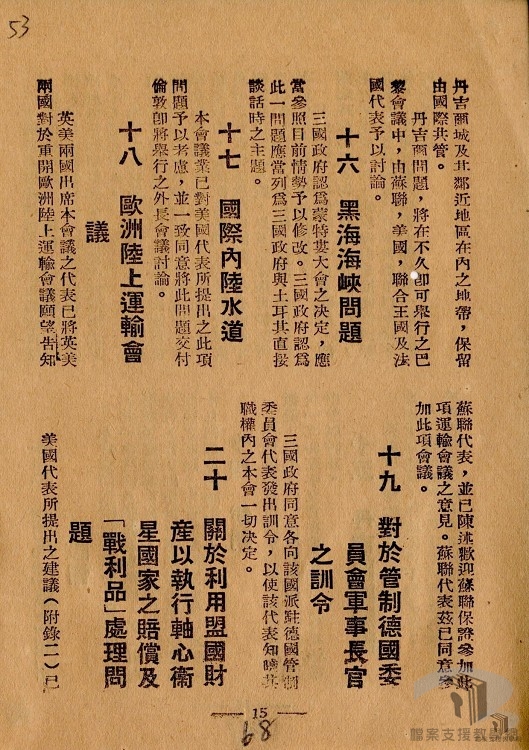 53
丹吉爾城及其鄰近地區在內之地帶，保留
由國際共管。
丹吉爾問題，將在不久卽可舉行之巴
黎會議中，由蘇聯，美國，聯合王國及法
國代表予以討論。
十六　黑海海峽問題
三國政府認爲蒙特婁大會之決定，應
當參照目前情勢予以修改。三國政府認爲
此一問題應當列爲三國政府與土耳其直接
談話時之主題。
十七　國際內陸水道
本會議業已對美國代表所提出之此項
問題予以考慮，並一致同意將此問題交付
倫敦卽將舉行之外長會議討論。
十八　歐洲陸上運輸會
議
英美兩國出席本會議之代表已將英美
兩國對於重開歐洲陸上運輸會議願望告知
蘇聯代表，並已陳述歡迎蘇聯保證參加此
項運輸會議之意見。蘇聯代表茲已同意參
加此項會議。
十九　對於管制德國委
員會軍事長官
之訓令
三國政府同意各向該國派駐德國管制
委員會代表發出訓令，以使該代表知曉其
職權內之本會一切決定。
二十　關於利用盟國財
產以執行軸心衛
星國家之賠償及
「戰利品」處理問
題
美國代表所提出之建議（附錄二）已
15
68
檔案支援教學網